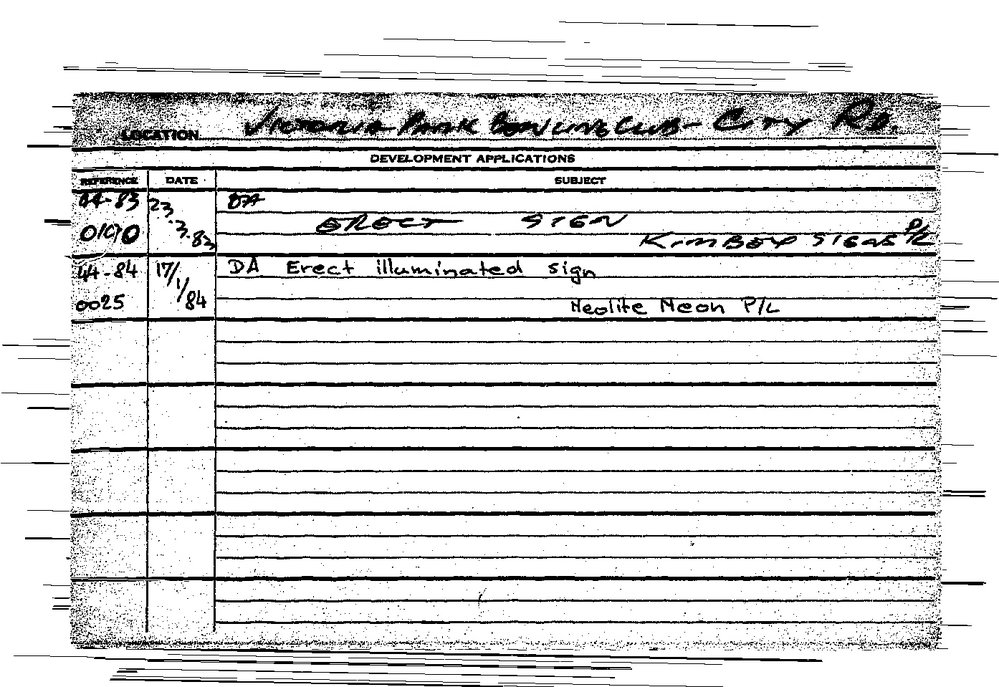 LOCATION VICTORIA PARK BOWLING CLUB - CITY RD.
DEVELOPMENT APPLICATIONS
REFERENCE DATE SUBJECT
44-83 23. DA
ERECT SIGN
0190 3.83 KIMBEY SIGNS P/L
44-84 17/ DA Erect illuminated sign
0025 1/84 Neolite Neon P/L